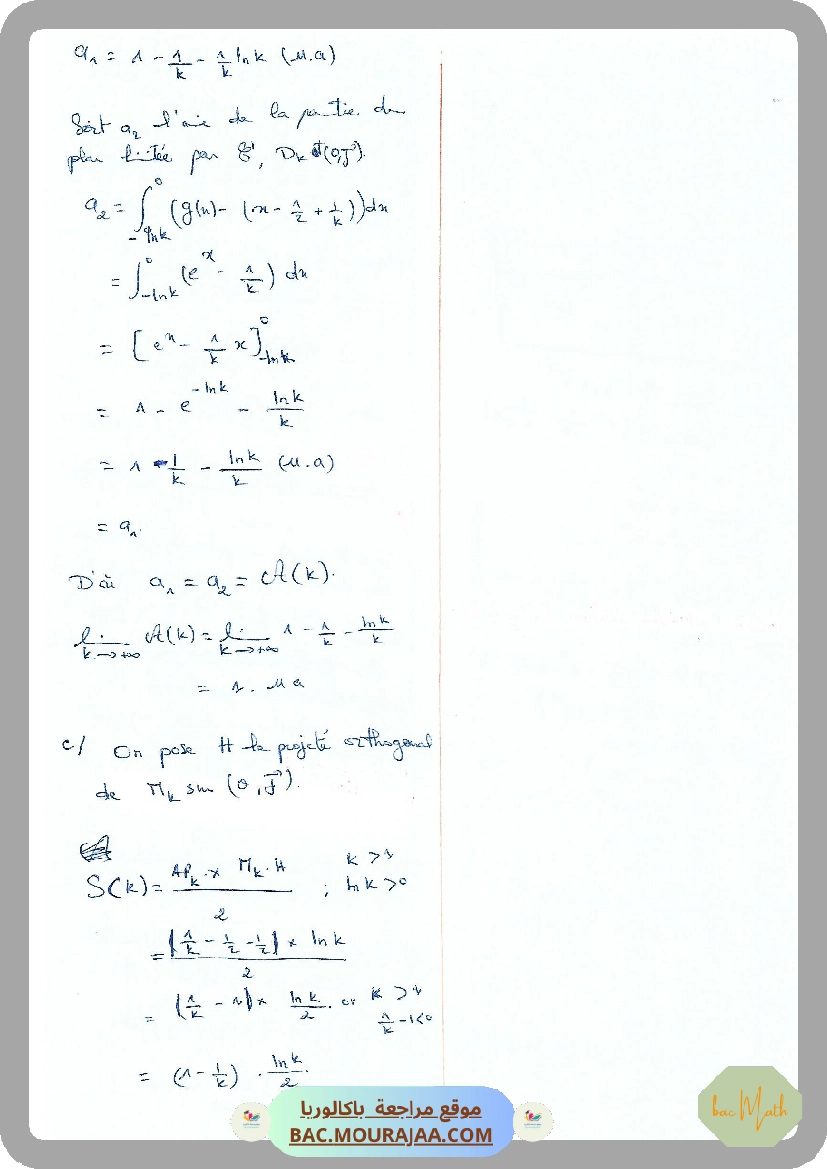 a₁ = 1 - 1/k - 1/k ln k (u.a)
Soit a₂ l'aire de la partie du
plan limitée par ζ', Dk et (O,J⃗).
a₂ = ∫_{-ln k}^{0} (g(x) - (x - 1/2 + 1/k)) dx
= ∫_{-ln k}^{0} (e^x - 1/k) dx
= [e^x - 1/k x]_{-ln k}^{0}
= 1 - e^{-ln k} - ln k/k
= 1 - 1/k - ln k/k (u.a)
= a₁.
D'où a₁ = a₂ = A(k).
lim_{k→+∞} A(k) = lim_{k→+∞} 1 - 1/k - ln k/k
= 1. u a
c/ On pose H le projeté orthogonal
de Mk sur (O,J⃗).
S(k) = APk × Mk.H / 2 ; k > 1 ln k > 0
= |1/k - 1/2 - 1/2| × ln k / 2
= |1/k - 1| × ln k/2 . or k > 1 1/k - 1 < 0
= (1 - 1/k) . ln k/2.
موقع مراجعة باكالوريا
BAC.MOURAJAA.COM
bac Math